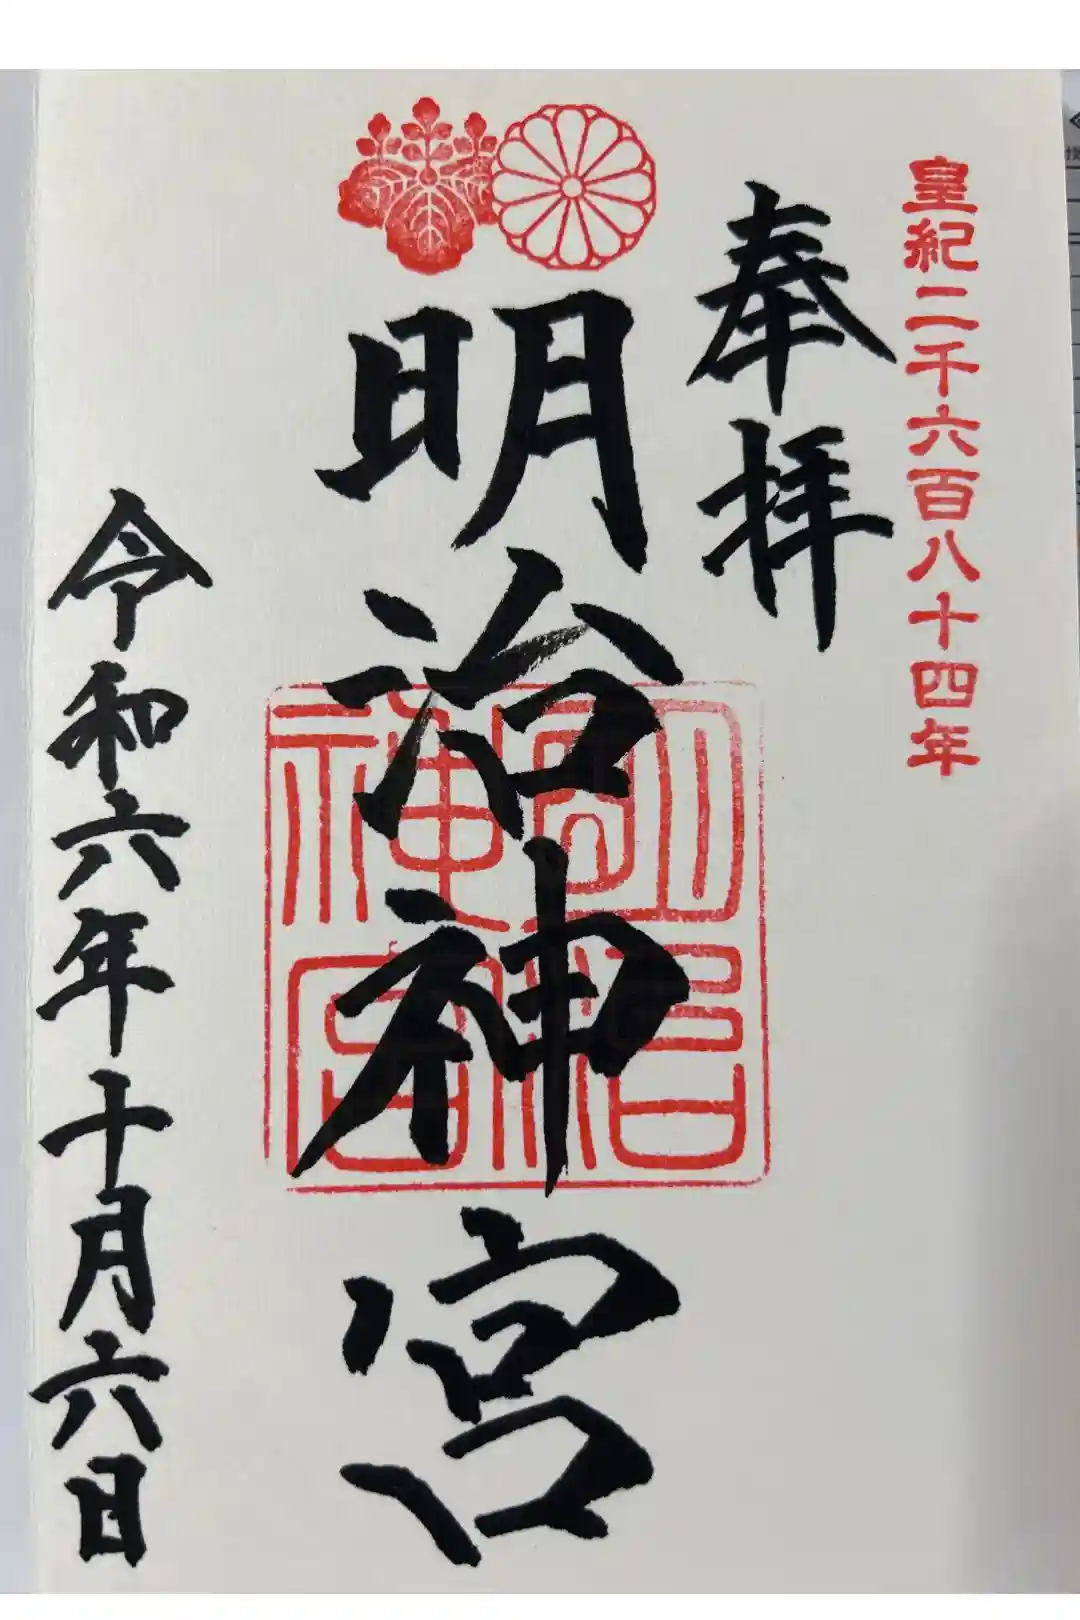 皇紀二千六百八十四年
奉拝
明治神宮
明治神宮
令和六年十月六日